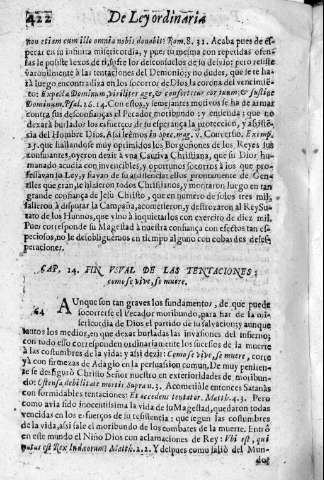 422 De Ley ordinaria
non etiam cum illo omnia nobis donabit: Rom. 8. 31. Acaba pues de es-
perar en su infinita misericordia, y pues tu mesma con repetidas ofen-
sas le pusiste lexos de ti, sufre los desconsuelos de su desvio; pero resiste
varonilmente à las tentaciones del Demonio; y no dudes, que se te ha-
rà luego encontradiza en los socorros de Dios la corona del vencimie-
to: Expecta Dominum, viriliter age, & confortetur cor tuum, & sustine
Dominum, Psal. 26. 14. Con estos, y semejantes motivos se ha de armar
contra sus desconfianças el Pecador moribundo; y entienda; que no
dexarà burlados los esfuerços de su esperança la proteccion, y assisten-
cia del Hombre Dios. Assi leèmos in spec. mag. v. Conversio, Exemp.
25. que hallandose muy oprimidos los Borgoñones de los Reyes sus
confinantes, oyeron dezir à vna Cautiva Christiana, que su Dios hu-
manado acudia con invencibles, y oportunos socorros à los que pro-
fessavan su Ley, y fiavan de su assistencia: ellos prontamente de Gen-
tiles que eran, se hizieron todos Christianos, y montaron luego en tan
grande confiança de Jesu Christo, que en numero de solos tres mil,
salieron à disputar la Campaña, acometieron, y destroçaron al Rey Su-
zato de los Hunnos, que vino à inquietarlos con exercito de diez mil.
Pues corresponde su Magestad à nuestra confiança con efectos tan es-
peciosos, no le desobliguemos en tiempo alguno con cobardes deses-
peraciones.
CAP. 14. FIN VSVAL DE LAS TENTACIONES;
como se vive, se muere.
64 AUnque son tan graves los fundamentos, de que puede
socorrerse el Pecador moribundo, para har de la mi-
sericordia de Dios el partido de su salvacion; y aunque
tantos los medios, en que dexar burladas las invasiones del infierno;
con todo esso corresponden ordinariamente los sucessos de la muerte
à las costumbres de la vida: y assi dezir: Como se vive, se muere, corre
yà con firmezas de Adagio en la persuasion comun. De muy pensien-
se se desfigurò Christo Señor nuestro en exterioridades de moribun-
do: Ostensa debilitate mortis Supra n. 3. Acometiòle entonces Satanàs
con formidables tentaciones: Et accedens tentator. Matth. 4. 3. Pero
como avia sido inocentissima la vida de su Magestad, quedaron todas
vencidas en los esfuerços de su resistencia: que segun las costumbres
de la vida, assi sale el moribundo de los combates de la muerte. Entrò
en este mundo el Niño Dios con aclamaciones de Rey: Vbi est, qui
natus est Rex Iudæorum? Matth. 2. 2. Y delpues como saliò del Mun-
do?